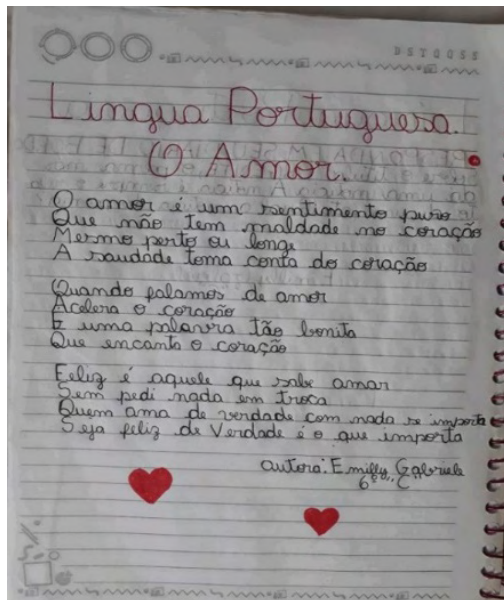 D S T Q Q S S
Língua Portuguesa.
O Amor.
O amor é um sentimento puro
Que não tem maldade no coração
Mesmo perto ou longe
A saudade toma conta do coração
Quando falamos de amor
Acelera o coração
É uma palavra tão bonita
Que encanta o coração
Feliz é aquele que sabe amar
Sem pedi nada em troca
Quem ama de verdade com nada se importa
Seja feliz de Verdade é o que importa
autora: Emilly Gabriele
6º "C"